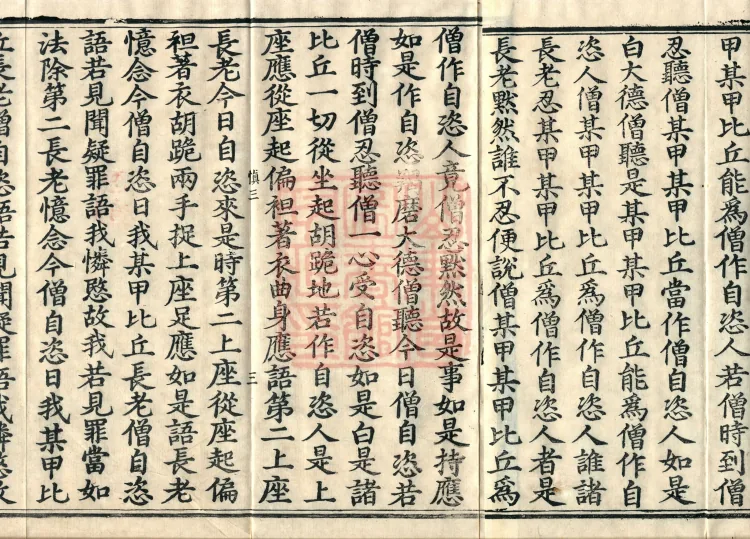 甲某甲比丘能爲僧作自恣人若僧時到僧
忍聽僧某甲某甲比丘當作僧自恣人如是
白大德僧聽是某甲某甲比丘能爲僧作自
恣人僧某甲某甲比丘爲僧作自恣人誰諸
長老忍某甲某甲比丘爲僧作自恣人者是
長老默然誰不忍便說僧某甲某甲比丘爲
僧作自恣人竟僧忍默然故是事如是持應
如是作自恣羯磨大德僧聽今日僧自恣若
僧時到僧忍聽僧一心受自恣如是白是諸
比丘一切從坐起胡跪地若作自恣人是上
座應從座起偏袒著衣曲身應語第二上座
慎三
三
長老今日自恣來是時第二上座從座起偏
袒著衣胡跪兩手捉上座足應如是語長老
憶念今僧自恣日我某甲比丘長老僧自恣
語若見聞疑罪語我憐愍故我若見罪當如
法除第二長老憶念今僧自恣日我某甲比
丘長老僧自恣語若見聞疑罪語我憐愍故